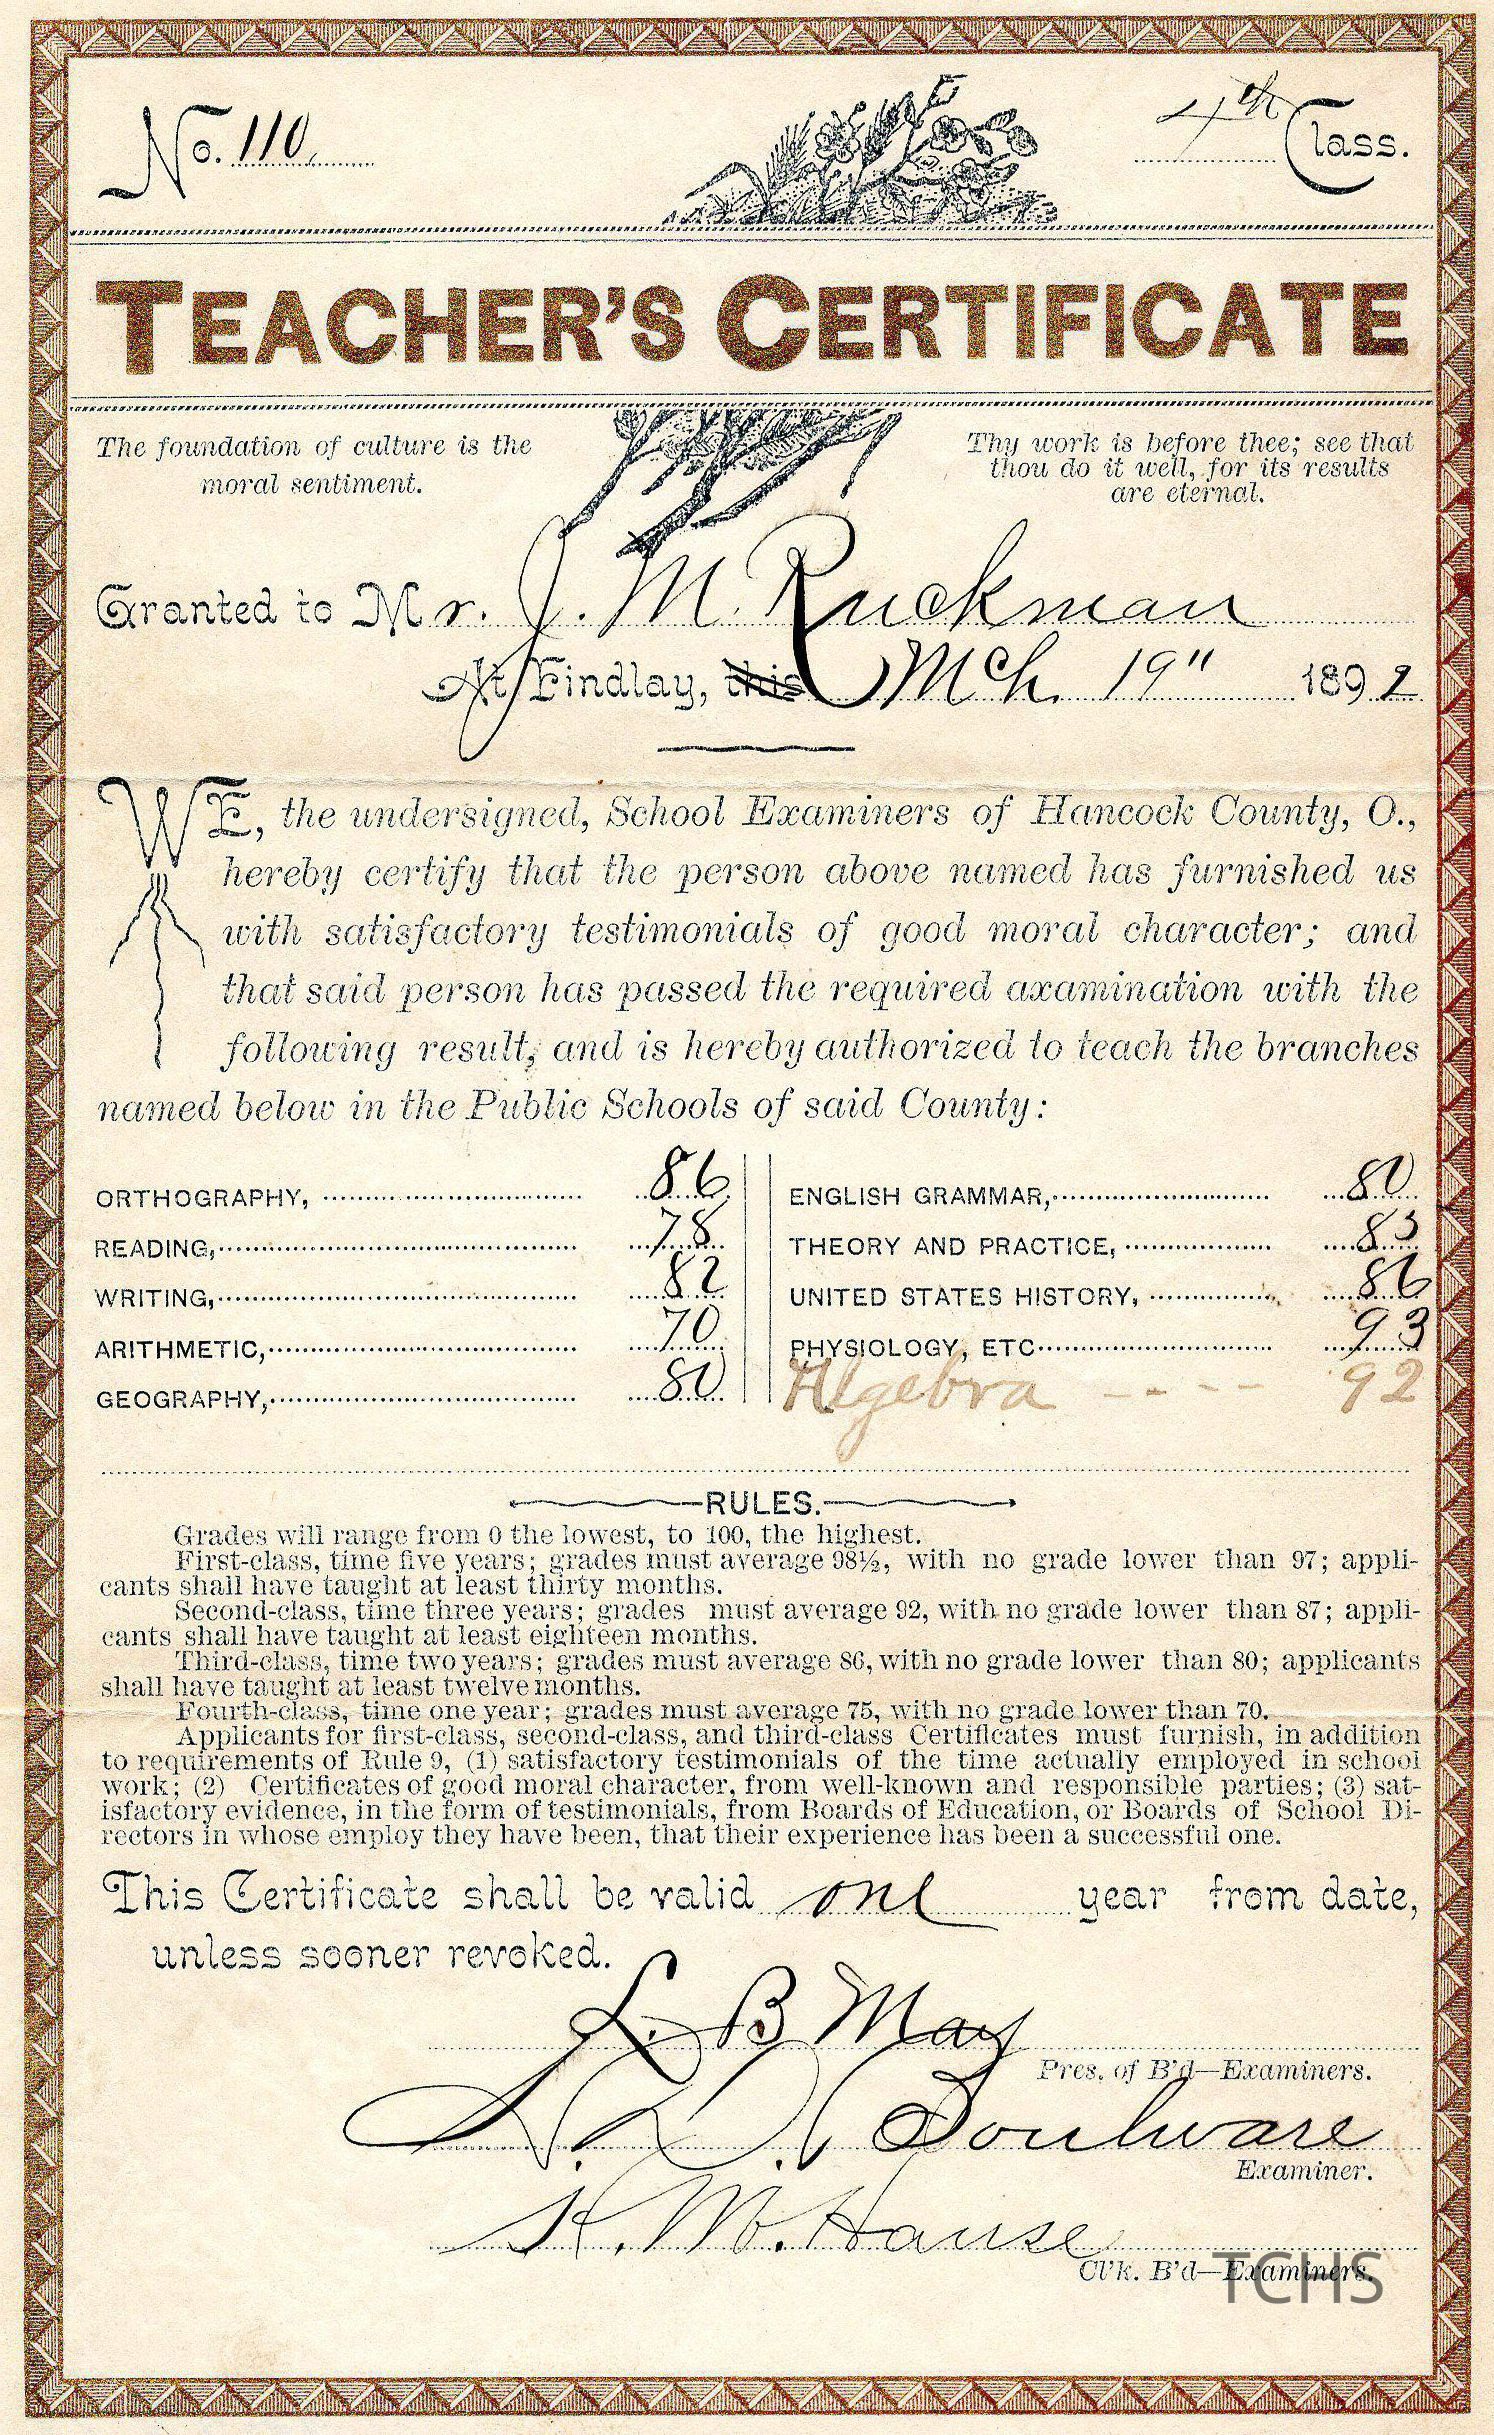 No. 110
4th Class.
TEACHER'S CERTIFICATE
The foundation of culture is the
moral sentiment.
Thy work is before thee; see that
thou do it well, for its results
are eternal.
Granted to Mr. J. M. Ruckman
At Findlay, this Mch. 19" 1892
WE, the undersigned, School Examiners of Hancock County, O.,
hereby certify that the person above named has furnished us
with satisfactory testimonials of good moral character; and
that said person has passed the required axamination with the
following result, and is hereby authorized to teach the branches
named below in the Public Schools of said County:
ORTHOGRAPHY, 86
READING, 78
WRITING, 82
ARITHMETIC, 70
GEOGRAPHY, 80
ENGLISH GRAMMAR, 80
THEORY AND PRACTICE, 83
UNITED STATES HISTORY, 86
PHYSIOLOGY, ETC. 93
Algebra - - - - 92
RULES.
Grades will range from 0 the lowest, to 100, the highest.
First-class, time five years; grades must average 98½, with no grade lower than 97; appli-
cants shall have taught at least thirty months.
Second-class, time three years; grades must average 92, with no grade lower than 87; appli-
cants shall have taught at least eighteen months.
Third-class, time two years; grades must average 86, with no grade lower than 80; applicants
shall have taught at least twelve months.
Fourth-class, time one year; grades must average 75, with no grade lower than 70.
Applicants for first-class, second-class, and third-class Certificates must furnish, in addition
to requirements of Rule 9, (1) satisfactory testimonials of the time actually employed in school
work; (2) Certificates of good moral character, from well-known and responsible parties; (3) sat-
isfactory evidence, in the form of testimonials, from Boards of Education, or Boards of School Di-
rectors in whose employ they have been, that their experience has been a successful one.
This Certificate shall be valid one year from date,
unless sooner revoked.
L. B May
Pres. of B'd—Examiners.
Boulware
Examiner.
K. M. Hause
Cl'k. B'd—Examiners.
TCHS